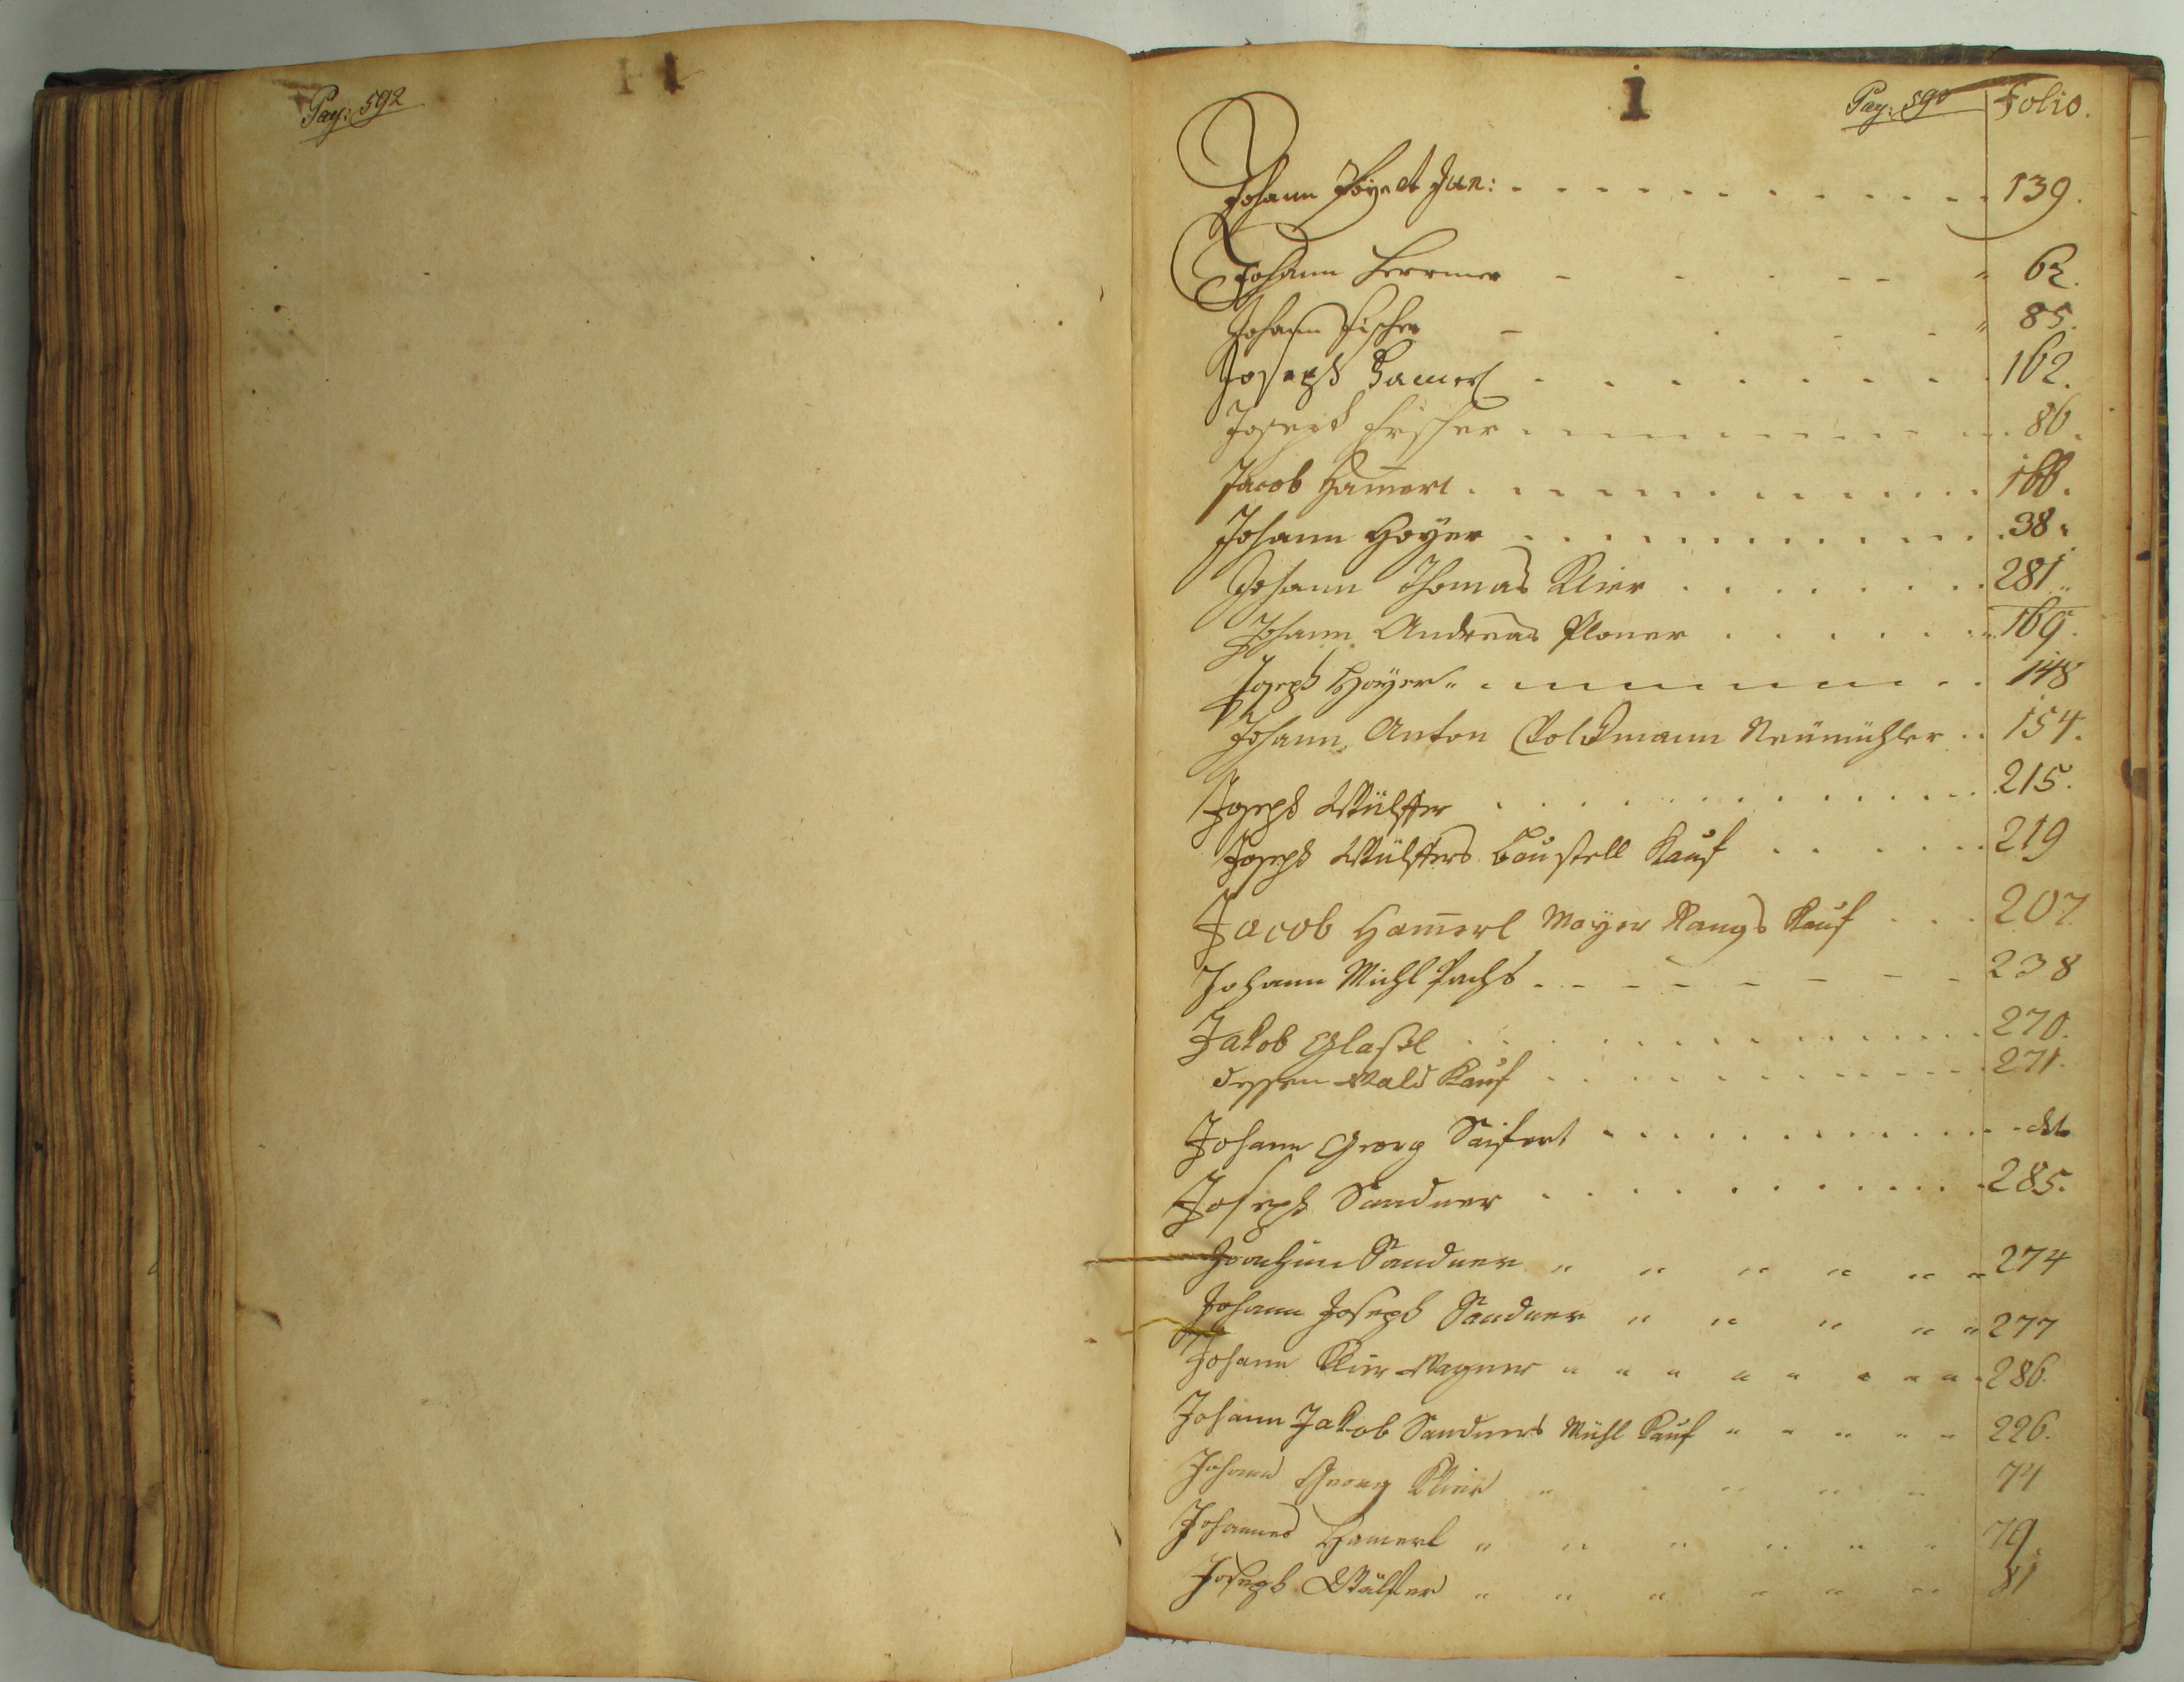 Pag: 592
i
Pag: 590
Folio.
Johann Jun: 139.
Johann 62.
Johann Fischer 85.
Joseph Hamerl 162.
Joseph Fischer 86.
Jacob Ham̄erl 166.
Johann Hoÿer 38.
Johann Thomas Klier 281.
Johann Andreas Ploner 169.
Joseph Hoÿer 148
Johann Anton Volckmann Neümühler 154.
Joseph Wülfter 215.
Joseph Wülfters Baustell Kauf 219
Jacob Ham̄erl Mayer Rangs Kauf 207
Johann Michl Sachs 238
Jakob Glaßl 270.
dessen Wald Kauf 271.
Johann Georg Seifert
Joseph Sandner 285.
Joachim Sandner 274
Johann Joseph Sandner 277
Johann Klier Wagner 286.
Johann Jakob Sandners Mühl Kauf 226.
Johann Georg Klier 74
Johannes Hamerl 79.
Joseph Wülfter 81